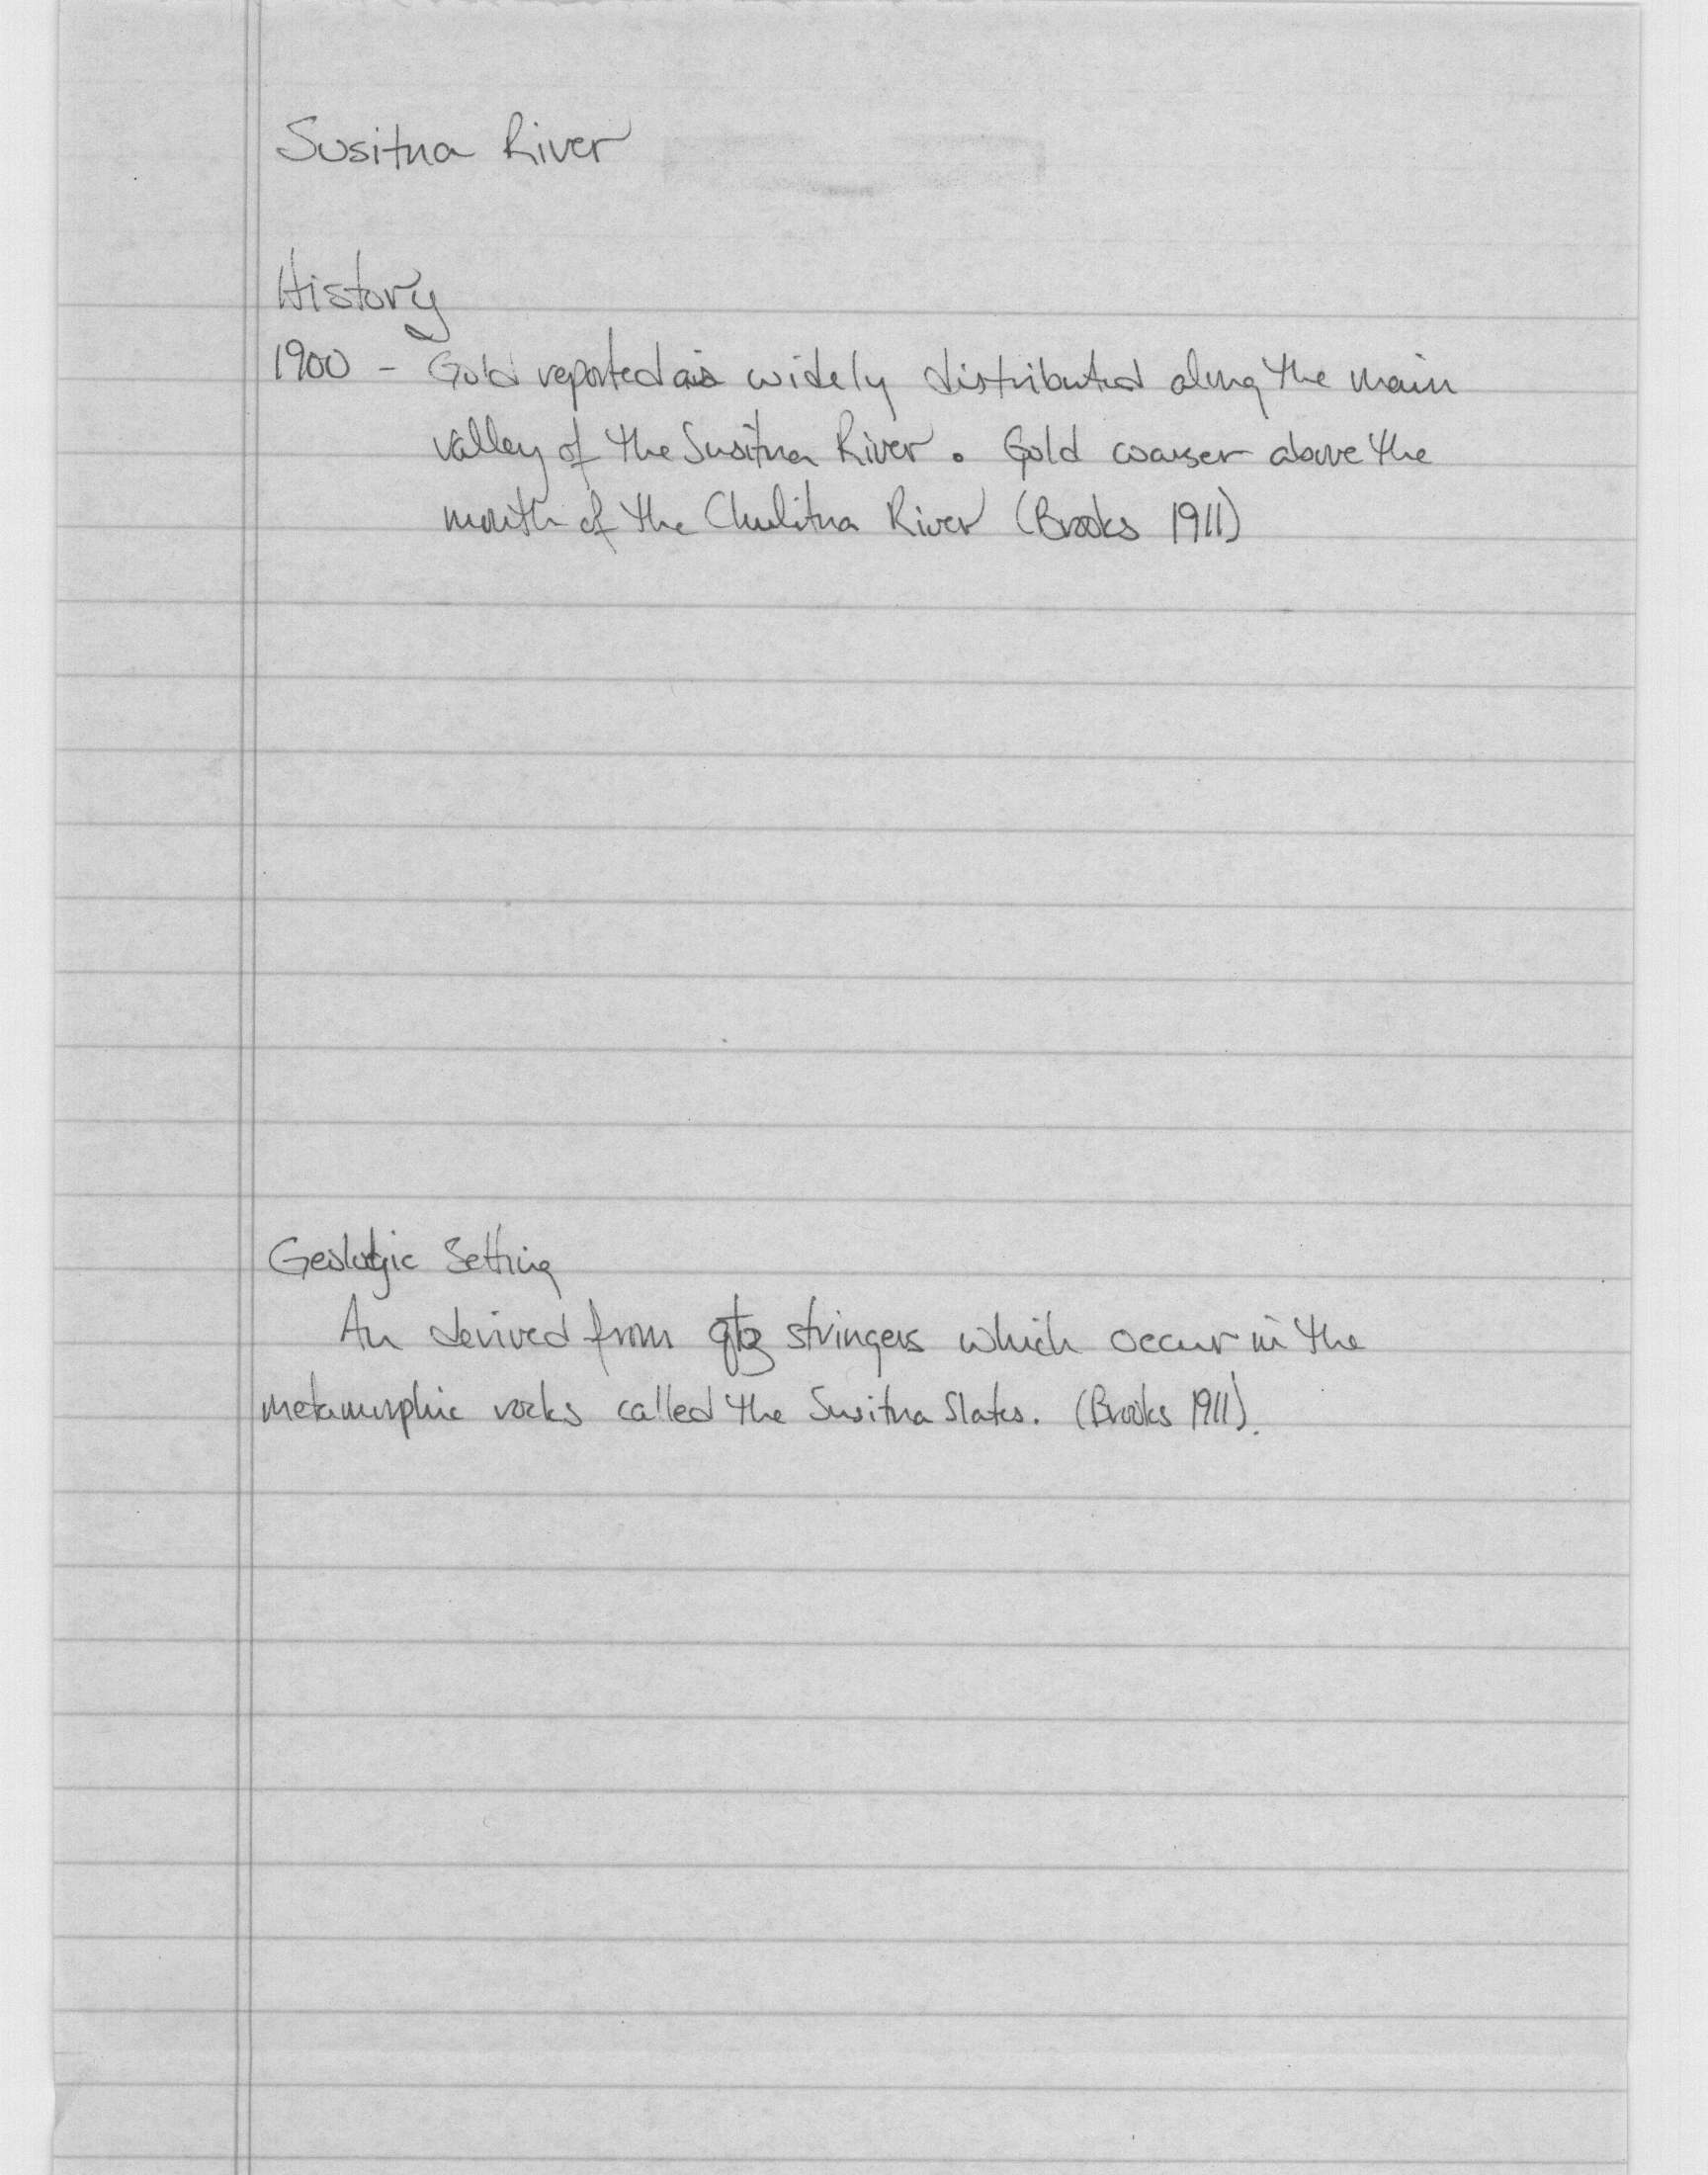 Susitna River
History
1900 - Gold reported as widely distributed along the main
valley of the Susitna River. Gold coarser above the
mouth of the Chulitna River (Brooks 1911)
Geologic Setting
Au derived from qtz stringers which occur in the
metamorphic rocks called the Susitna Slates. (Brooks 1911).